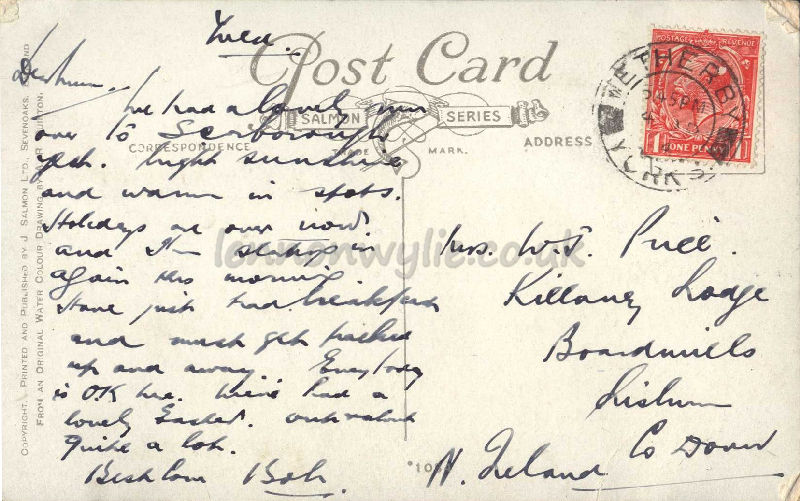 Wed.
Post Card
Dearhum
We had a lovely run
over to Scarborough
yest. bright sunshine
and warm in spots.
Holidays are over now
and I'm starting in
again this morning.
Have just had breakfast
and must get packed
up and away. Everybody
is OK here. We've had a
lovely Easter. out & about
quite a lot.
Best love Bob
SALMON SERIES
CORRESPONDENCE
TRADE MARK.
ADDRESS
Mrs. W.J. Price.
Killaney Lodge
Boardmills
Lisburn
Co Down
N. Ireland
POSTAGE REVENUE
1 ONE PENNY 1
WETHERBY
2 45 PM
YORKS
COPYRIGHT. PRINTED AND PUBLISHED BY J. SALMON LTD., SEVENOAKS,
FROM AN ORIGINAL WATER COLOUR DRAWING BY
lennonwylie.co.uk